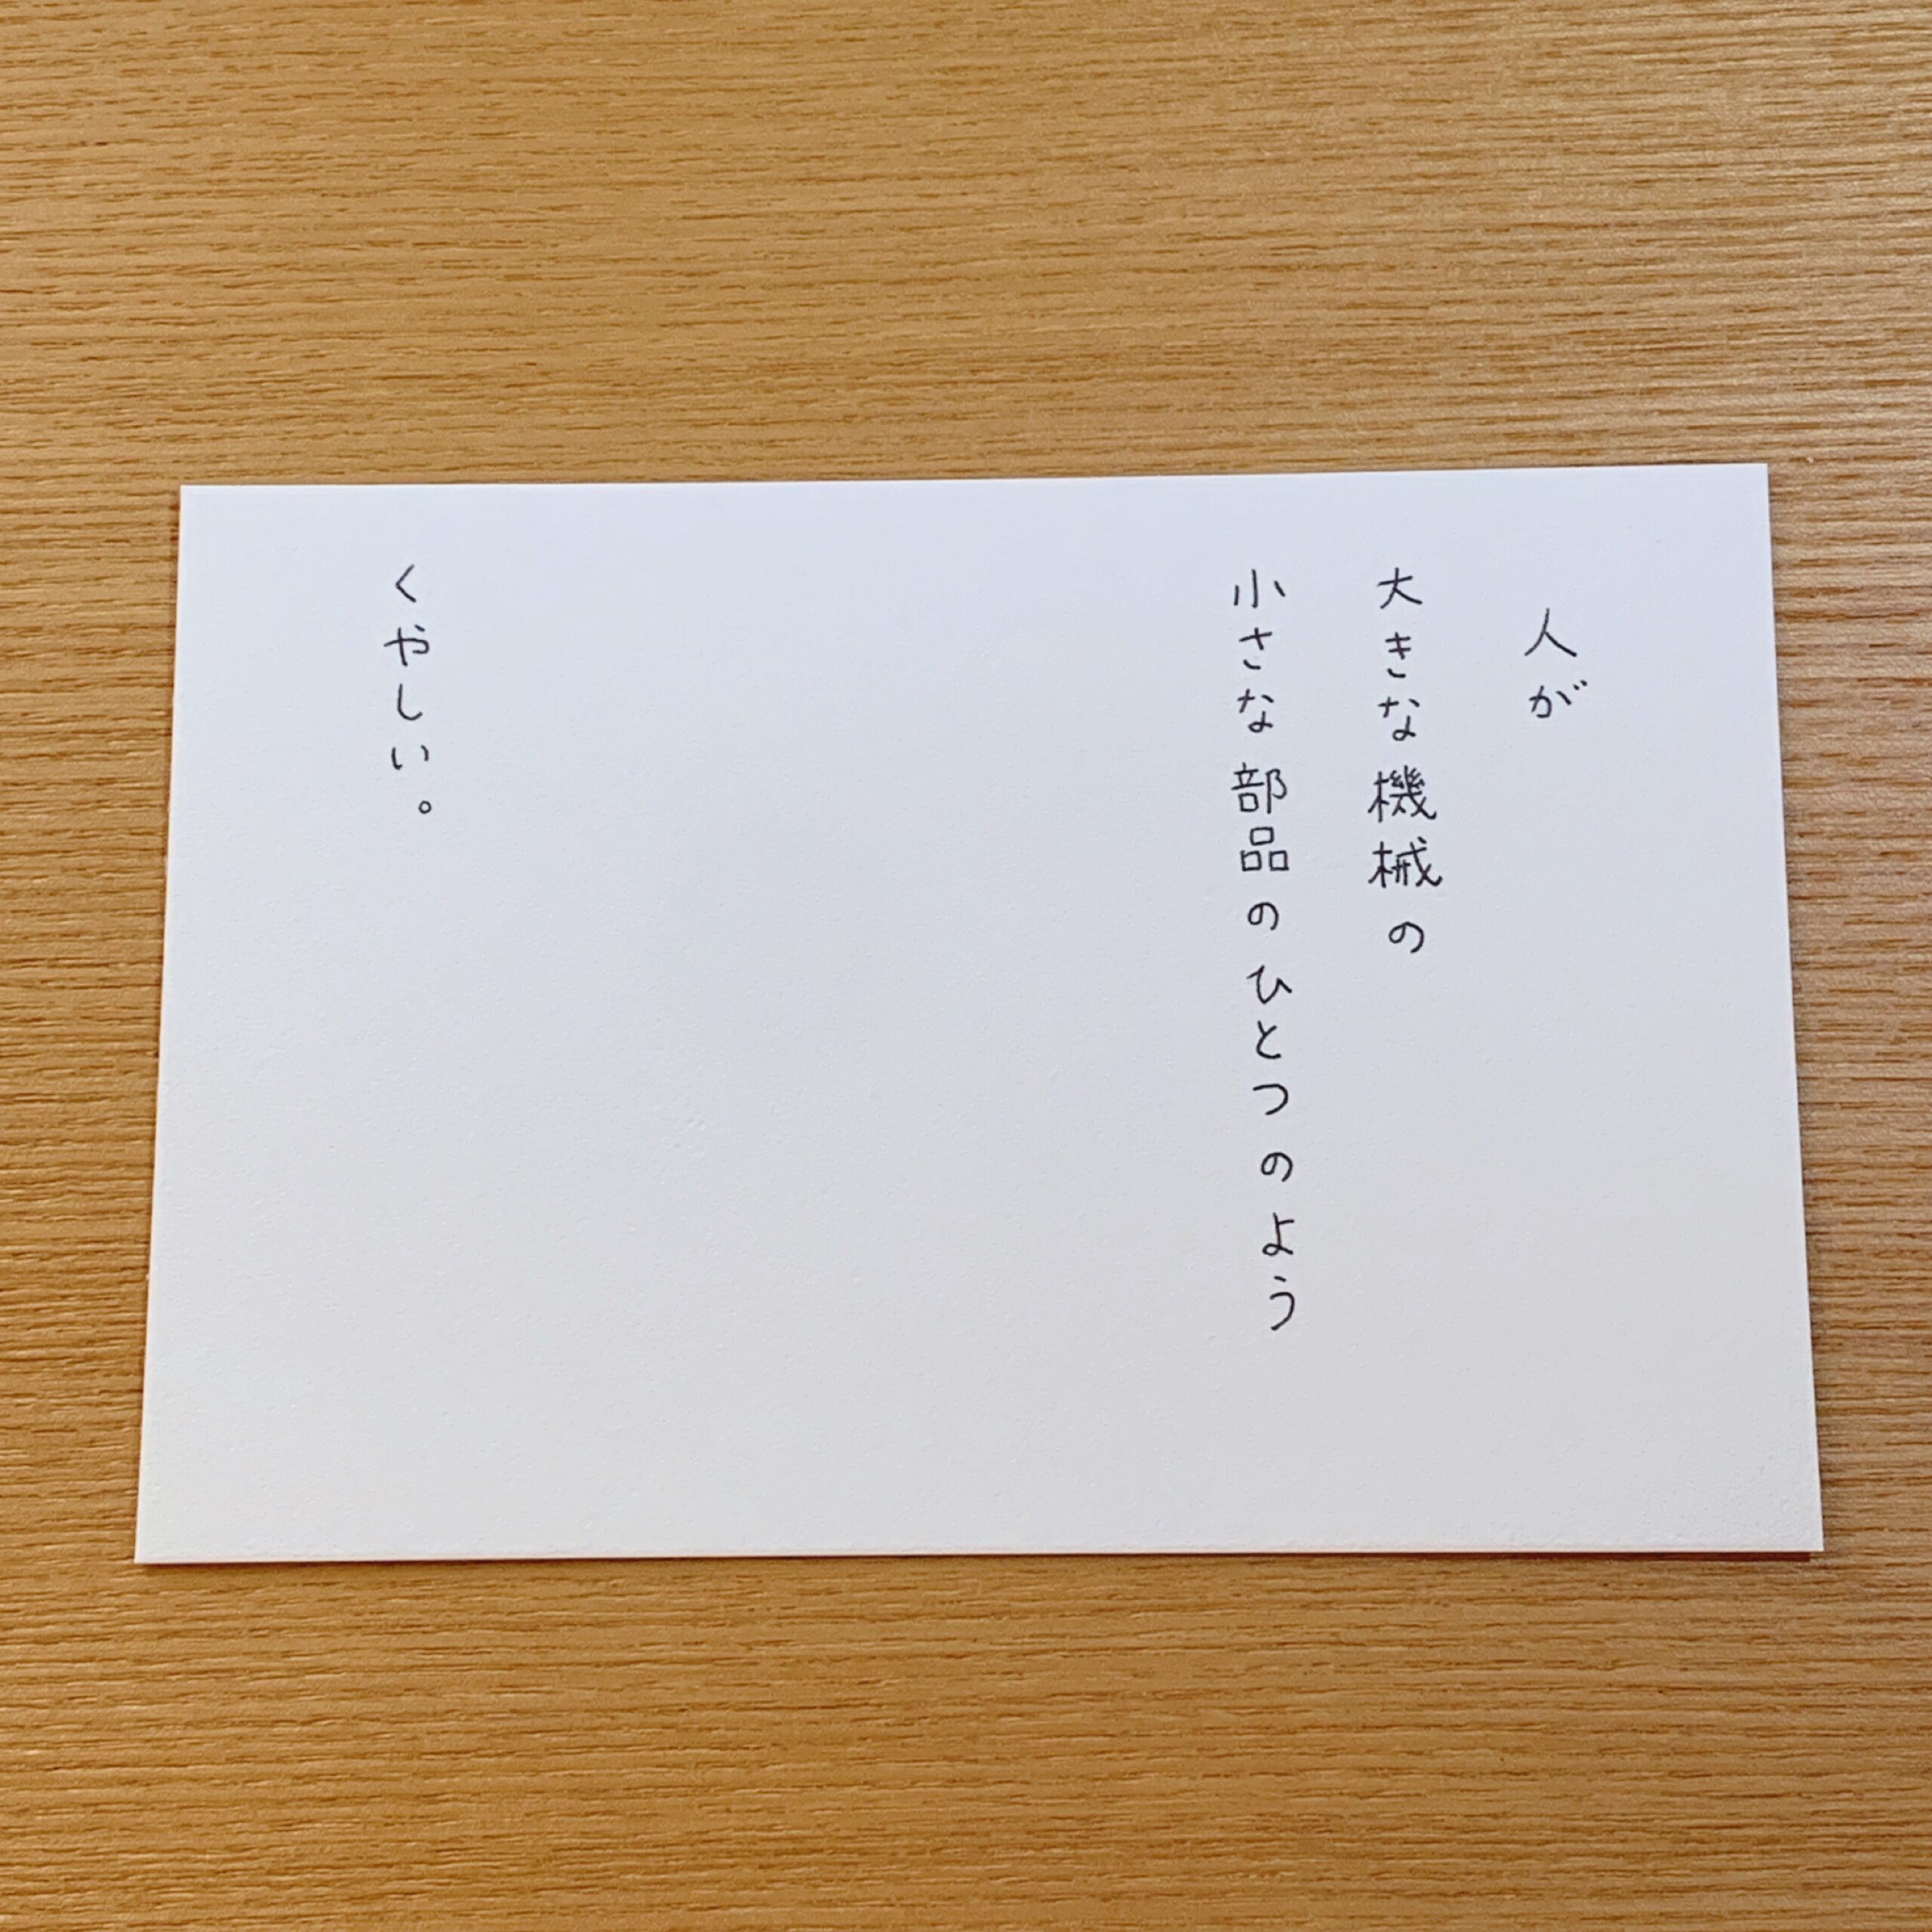 人が
大きな機械の
小さな部品のひとつのよう
くやしい。